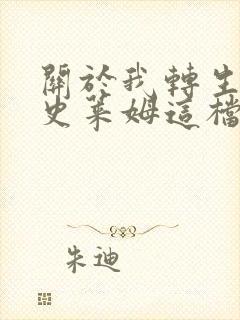 關於我轉生
史萊姆這檔
朱迪